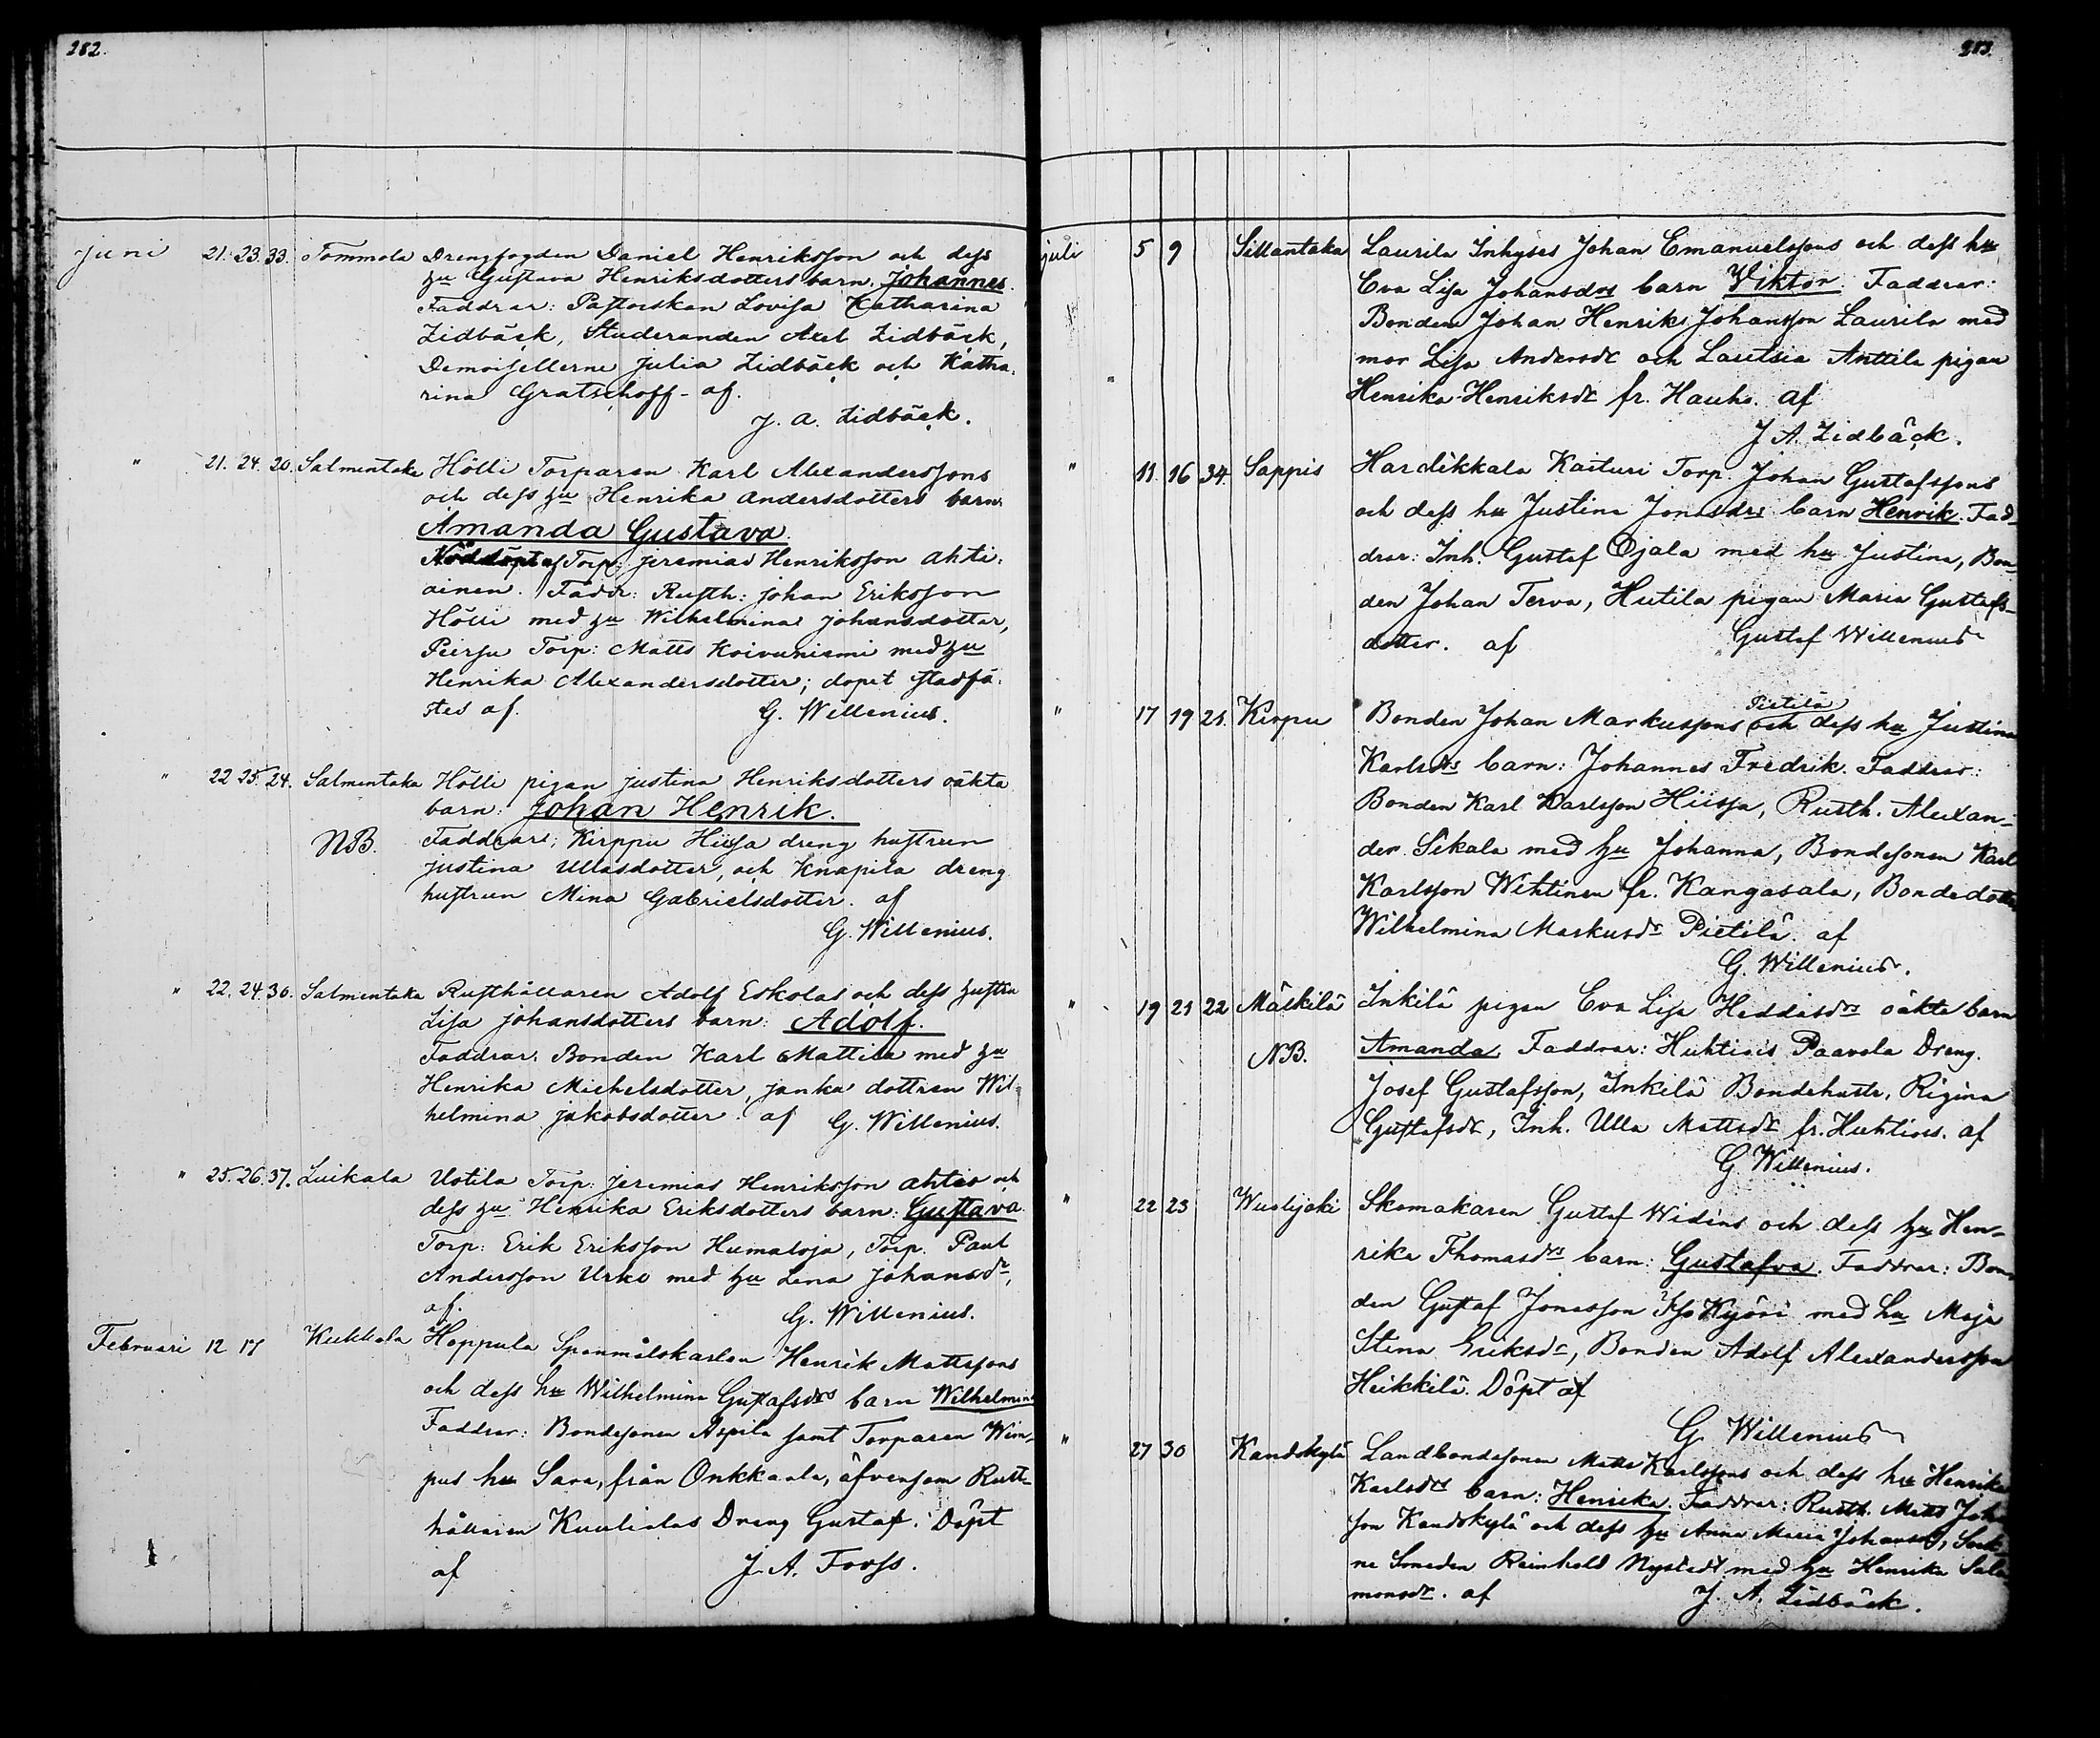 282.
Juni 21. 23. 33. Tommola Drengfogden Daniel Henriksson och dess
hu Gustava Henriksdotters barn. Johannes.
Faddrar: Pastorskan Lovisa Catharina
Zidbäck, Studeranden Axel Zidbäck,
Demoisellerne Julia Zidbäck och Katha-
rina Gratschoff - af.
J. A. Zidbäck.
" 21. 24. 20. Salmentaka Hölli Torparen Karl Alexanderssons
och dess hu Henrika Andersdotters barn
Amanda Gustava.
Nöddöpt af Torp. Jeremias Henriksson Ahti-
ainen. Faddr: Rusth: Johan Eriksson
Hölli med hu Wilhelmina Johansdotter,
Piersu Torp: Matts Koivuniemi med hu
Henrika Alexandersdotter; dopet stadfä-
stes af. G. Willenius.
" 22 25. 24. Salmentaka Hölli pigan Justina Henriksdotters oäkta
barn: Johan Henrik.
NB. Faddrar: Kirppu Hiisa dreng hustrun
Justina Ullasdotter, och Knapila dreng
hustrun Mina Gabrielsdotter. af
G. Willenius.
" 22. 24. 30. Salmentaka Rusthållaren Adolf Eskolas och dess hustru
Lisa Johansdotters barn: Adolf.
Faddrar: Bonden Karl Mattila med hu
Henrika Michelsdotter, Janka dottren Wil-
helmina Jakobsdotter. af G. Willenius.
" 25. 26. 37. Luikala Uotila Torp. Jeremias Henriksson Ahtis och
dess hu Henrika Eriksdotters barn: Gustava
Torp: Erik Eriksson Humaloja, Torp. Paul
Andersson Urko med hu Lena Johansdr,
af. G. Willenius.
Februari 12 17 Kukkola Hoppula Spanmålskarlen Henrik Mattssons
och dess hu Wilhelmina Gustafsdrs barn Wilhelmina
Faddrar: Bondesonen Arpila samt Torparen Wim-
pus hu Sara, från Onkkaala, äfvensom Rust-
hållaren Kuulialas Dreng Gustaf. Döpt
af J. A. Forss.
283.
Juli 5 9 Sillantaka Laurila Inhyses Johan Emanuelssons och dess hu
Eva Lisa Johansdrs barn Wiktor. Faddrar:
Bonden Johan Henrik Johansson Laurila med
mor Lisa Andersdr och Lautsia Anttila pigan
Henrika Henriksdr fr. Hauho. af
J. A. Zidbäck.
" 11. 16 34. Sappis Hardikkala Kaituri Torp. Johan Gustafssons
och dess hu Justina Jonasdrs barn Henrik. Fad-
drar: Inh. Gustaf Ojala med hu Justina, Bon-
den Johan Terva, Hutila pigan Maria Gustafs-
dotter. af Gustaf Willenius
" 17 19 21. Kirpu Bonden Johan Markussons Pietilä och dess hu Justina
Karlsdrs barn: Johannes Fredrik. Faddrar:
Bonden Karl Karlsson Hiisja, Rusth. Alexan-
der Sikala med hu Johanna, Bondesonen Karl
Karlsson Wihtinen fr. Kangasala, Bondedotter
Wilhelmina Markusdr Pietilä. af
G. Willenius.
" 19 21 22 Mälkilä Inkilä pigan Eva Lisa Heddasdrs oäkta barn
NB. Amanda. Faddrar: Huhtiois Paavola Dreng.
Josef Gustafsson, Inkilä Bondehustr. Rigina
Gustafsdr, Inh. Ulla Mattsdr fr. Huhtiois. af
G. Willenius.
" 22 23 Wuolijoki Skomakaren Gustaf Widins och dess hu Hen-
rika Thomasdrs barn: Gustafva. Faddrar: Bon-
den Gustaf Jonasson Iso Kyörä med hu Maja
Stina Eriksdr, Bonden Adolf Alexandersson
Heikkilä. Döpt af
G. Willenius
" 27 30 Kandskylä Landbondesonen Matts Karlssons och dess hu Henrika
Karlsdrs barn: Henrika. Faddrar: Rusth. Matts Johans-
son Kandskylä och dess hu Anna Maria Johansdr, Sock-
ne Smeden Reinhold Nystedt med hu Henrika Salo-
monsdr. af J. A. Zidbäck.